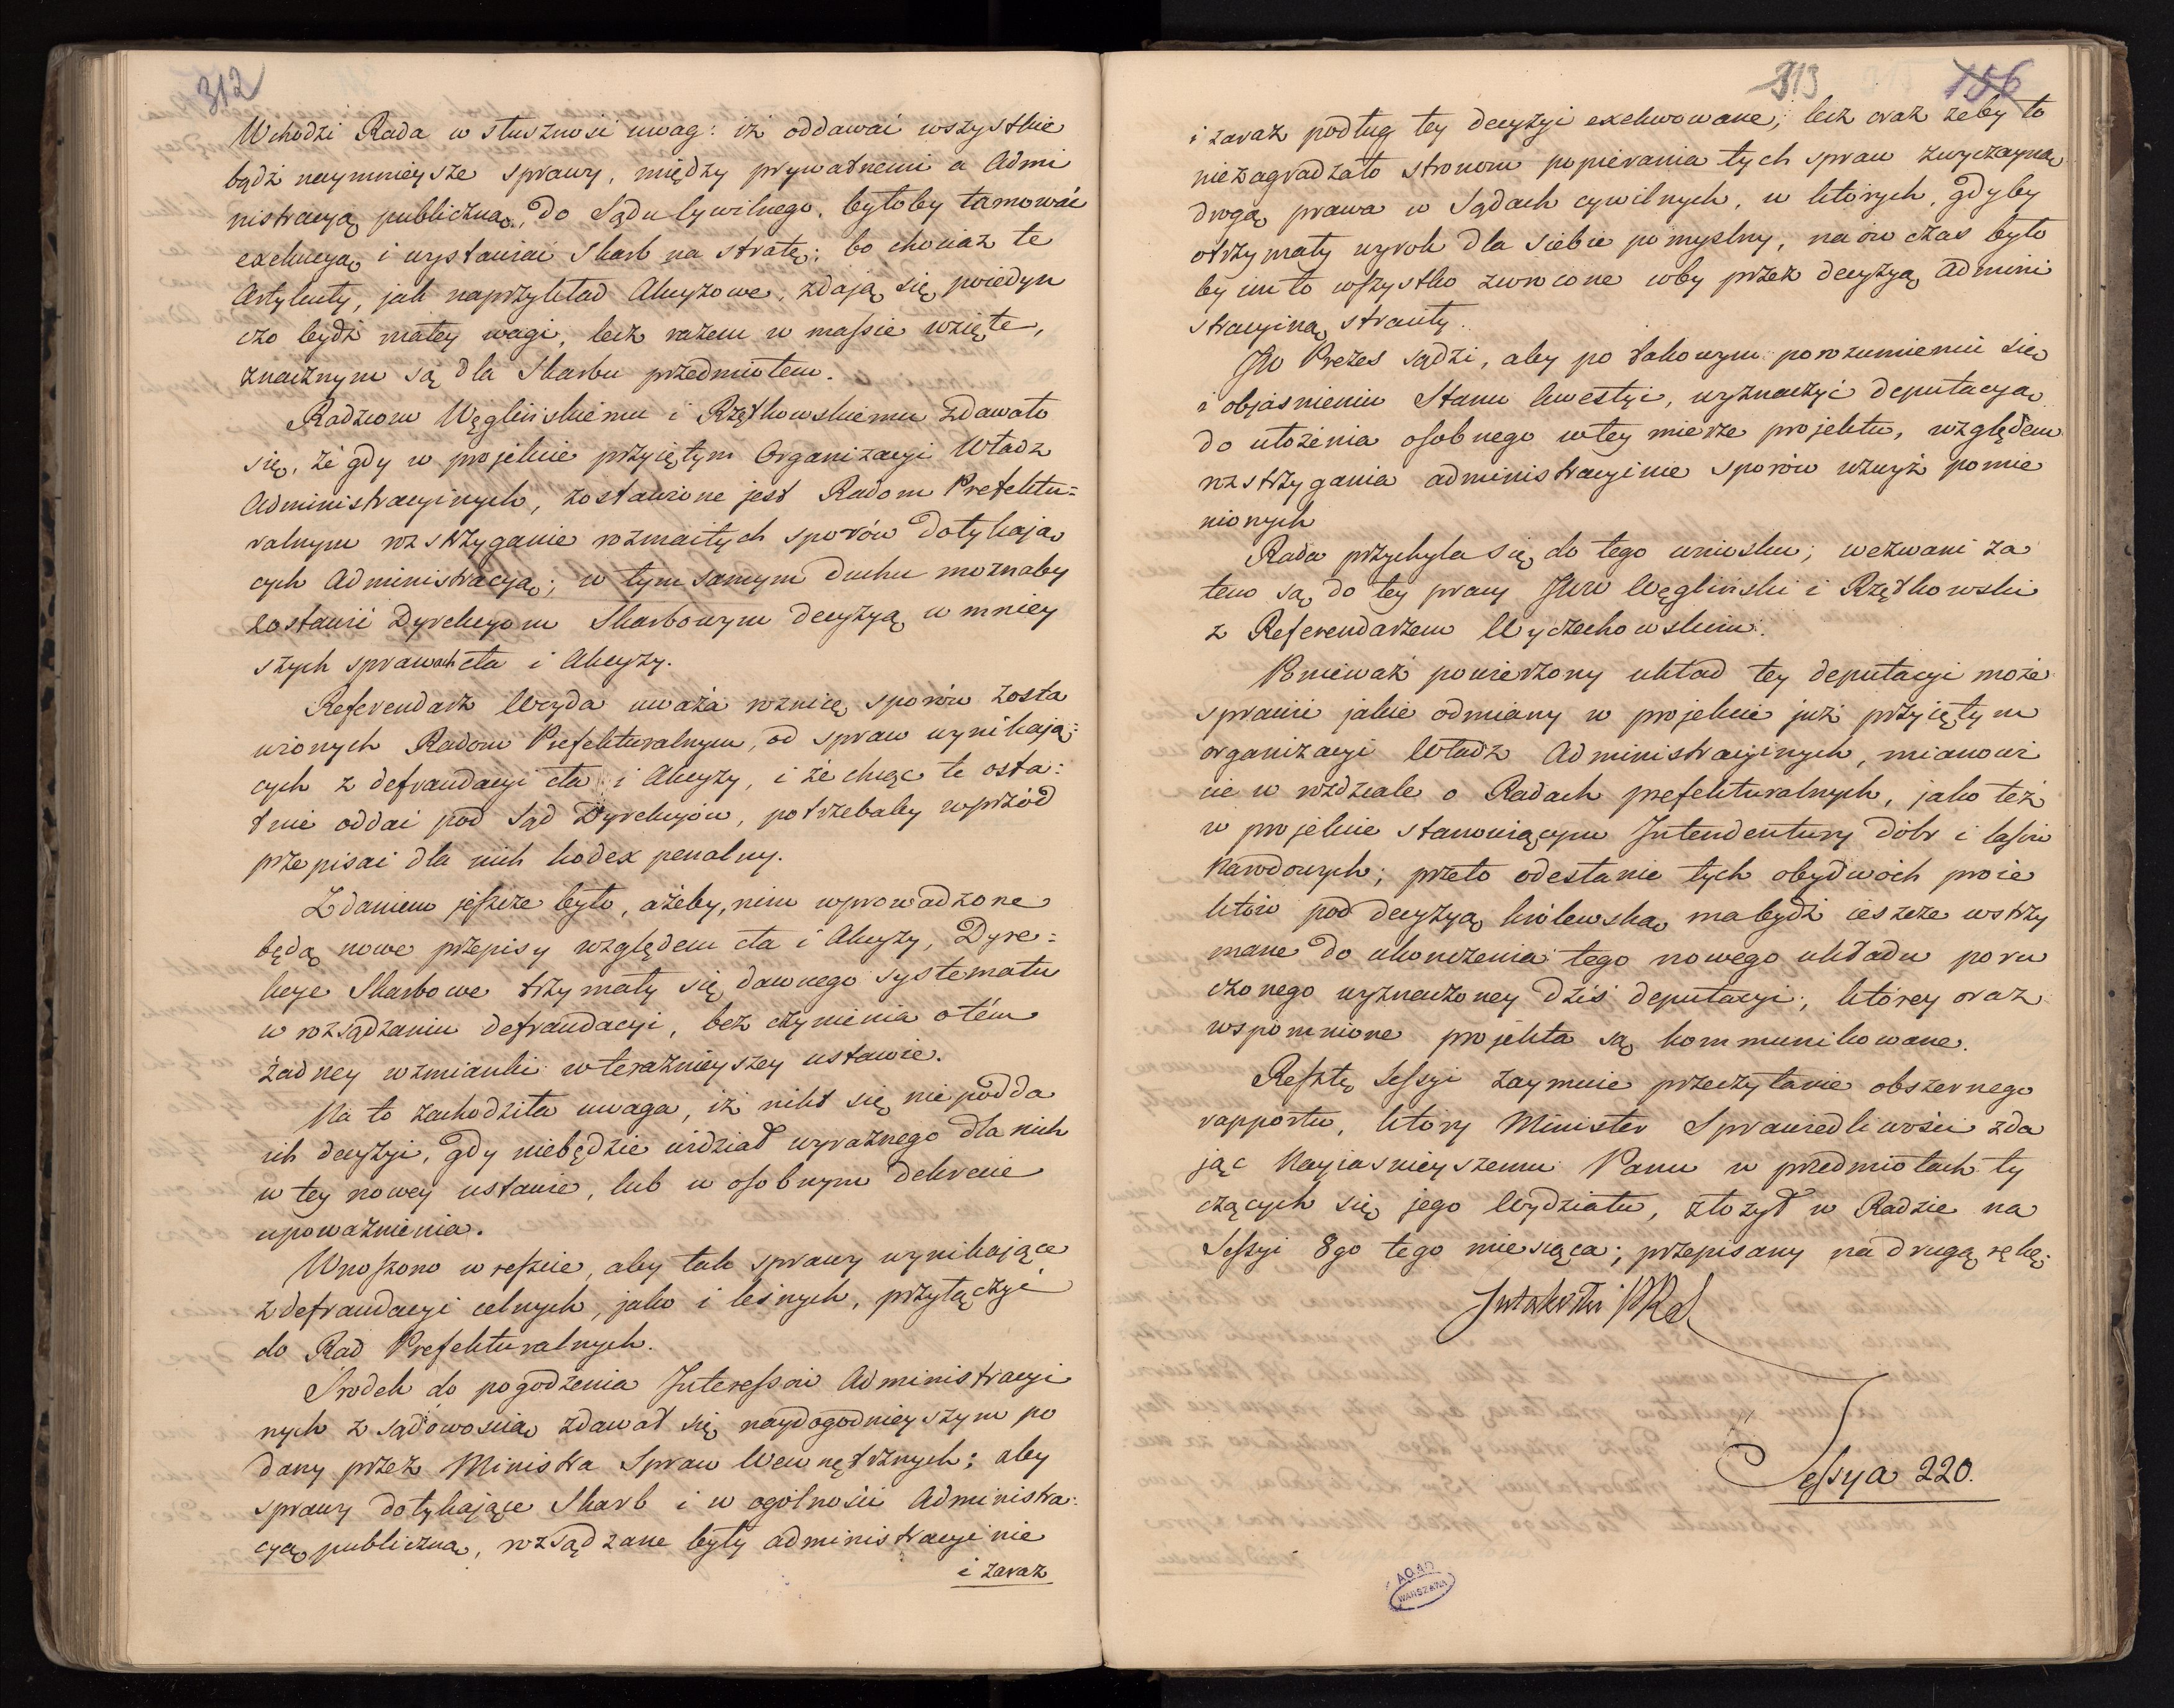 312
Wchodzi Rada w słuszność uwag: iż oddawać wszystkie
bądź naymnieysze sprawy, między prywatnemi a Admi
nistracyą publiczną, do Sądu Cywilnego, byłoby tamować
exekucyą i wystawiać Skarb na stratę; bo chociaż te
Artykuły, jak naprzykład Akcyzowe, zdają się poiedyn
czo bydź małey wagi, lecz razem w massie wzięte,
znacznym są dla Skarbu przedmiotem.
Radzcom Węglińskiemu i Rzętkowskiemu zdawało
się, że gdy w projekcie przyiętym Organizacyi Władz
Administracyinych, zostawione jest Radom Prefektu=
ralnym rozstrzyganie rozmaitych sporów dotykają
cych Administracyą; w tym samym duchu możnaby
zostawić Dyrekcyom Skarbowym decyzyą w mniey
szych sprawach cła i Akcyzy.
Referendarz Woyda uważa roznicę sporów zosta
wionych Radom Prefekturalnym, od spraw wynikają=
cych z defraudacyi cła i Akcyzy, i że chcąc te osta=
tnie oddać pod Sąd Dyrekcyow, potrzebaby wprzód
przepisać dla nich kodex penalny.
Zdaniem jeszcze było, ażeby, nim wprowadzone
będą nowe przepisy względem cła i Akcyzy, Dyre=
kcye Skarbowe trzymały się dawnego systematu
w rozsądzaniu defraudacyi, bez czynienia o tém
żadney wzmianki w teraznieyszey ustawie.
Na to zachodziła uwaga, iż nikt się nie podda
ich decyzyi, gdy niebędzie widział wyraznego dla nich
w tey nowey ustawie, lub w osobnym dekrecie
upoważnienia.
Wnoszono wreszcie, aby tak sprawy wynikające
z defraudacyi celnych, jako i leśnych, przyłączyć
do Rad Prefekturalnych.
Srodek do pogodzenia Interessów Administracyi
nych z sądowością zdawał się naydogodnieyszym po
dany przez Ministra Spraw Wewnętrznych; aby
sprawy dotykające Skarb i w ogólności Administra=
cyą publiczną, rozsądzane były administracyinie
i zaraz
313 156
i zaraz podług tey decyzyi exekwowane; lecz oraz żeby to
niezagradzało stronom popierania tych spraw zwyczayną
drogą prawa w Sądach cywilnych, w których, gdyby
otrzymały wyrok dla siebie pomyslny, naówczas było
by im to wszystko zwrocone coby przez decyzyą Admini
stracyiną straciły.
JW Prezes sądzi, aby po takowym porozumieniu się
i objaśnieniu Stanu kwestyi, wyznaczyć deputacyą
do ułożenia osobnego w tey mierze projektu, względem
rozstrzygania administracyinie sporów wzwyż pomie
nionych
Rada przychyla się do tego wniosku; wezwani za
tem są do tey pracy JWW Węgliński i Rzętkowski
z Referendarzem Wyczechowskim.
Ponieważ powierzony układ tey deputacyi może
sprawić jakie odmiany w projekcie już przyiętym
organizacyi Władz Administracyinych, mianowi
cie w rozdziale o Radach prefekturalnych, jako też
w projekcie stanowiącym Intendentury dóbr i lasów
Narodowych; przeto odesłanie tych obydwóch proie
któw pod decyzyą królewską ma bydź ieszcze wstrzy
mane do ukończenia tego nowego układu poru
czonego wyznaczoney dziś deputacyi; którey oraz
wspomnione projekta są kommunikowane.
Resztę Sessyi zaymuie przeczytanie obszernego
rapportu, który Minister Sprawiedliwości zda
jąc Nayiasnieyszemu Panu w przedmiotach ty
czących się jego Wydziału, złożył w Radzie na
Sessyi 8go tego miesiąca; przepisany na drugą rękę.
Sessya 220.
AGAD
WARSZAWA